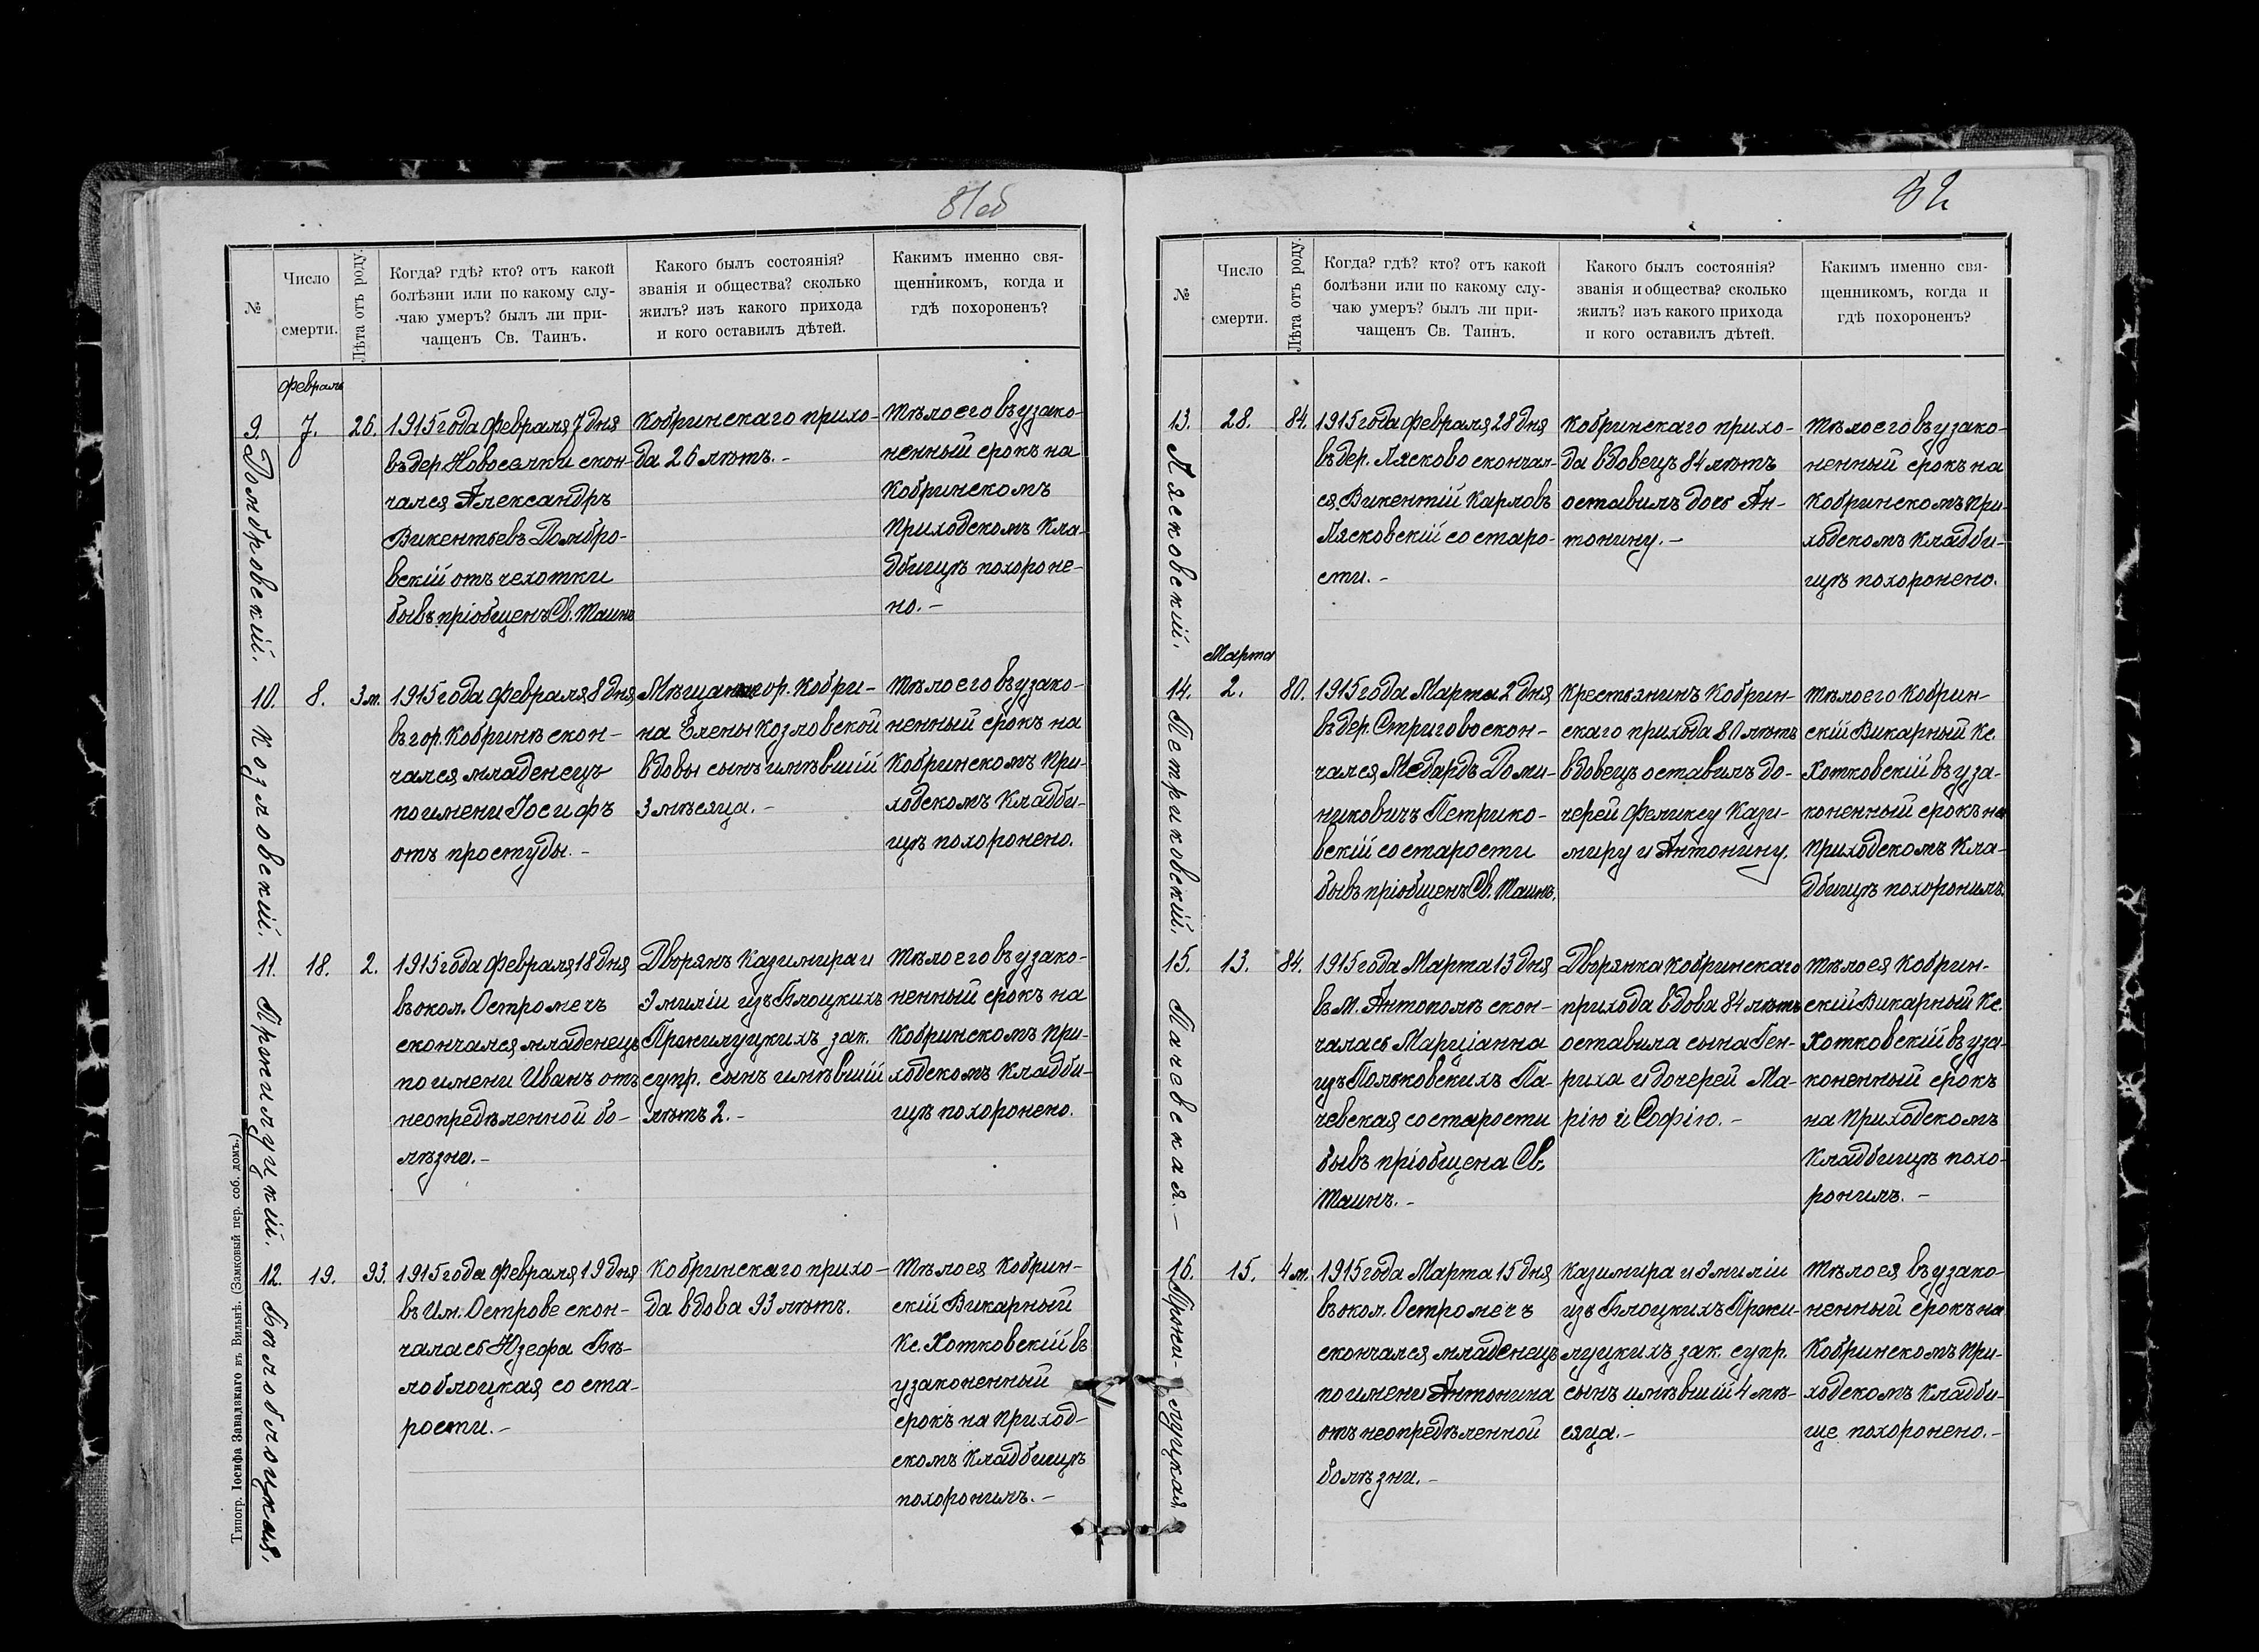 81об
№
Число
смерти.
Лѣта отъ роду.
Когда? гдѣ? кто? отъ какой
болѣзни или по какому слу-
чаю умеръ? былъ ли при-
чащенъ Св. Таинъ.
Какого былъ состоянія?
званія и общества? сколько
жилъ? изъ какого прихода
и кого оставилъ дѣтей.
Какимъ именно свя-
щенникомъ, когда и
гдѣ похороненъ?
Февраль
9.
Домбровскій.
7.
26.
1915 года Февраля 7 дня
въ дер. Новоселки скон-
чался Александръ
Викентьевъ Домбро-
вскій отъ чехотки
бывъ пріобщенъ Св. Таинъ
Кобринскаго прихо-
да 26 лѣтъ.-
Тѣло его въ узако-
ненный срокъ на
Кобринскомъ
Приходскомъ Кла-
дбищѣ похороне-
но.-
10.
Козловскій.
8.
3 м.
1915 года Февраля 8 дня
въ гор. Кобринѣ скон-
чался младенецъ
по имени Іосифъ
отъ простуды.-
гор. Кобри-
на Елены Козловской
вдовы сынъ имѣвшій
3 мѣсяца.-
Тѣло его въ узако-
ненный срокъ на
Кобринскомъ При-
ходскомъ Кладби-
щѣ похоронено.
11.
Пржилуцкій.
18.
2.
1915 года Февраля 18 дня
въ окол. Остромечъ
скончался младенецъ
по имени Иванъ отъ
неопредѣленной бо-
лѣзни.-
Дворянъ Казимира и
Эмиліи изъ Блоцкихъ
Пржилуцкихъ зак.
супр. сынъ имѣвшій
лѣтъ 2.-
Тѣло его въ узако-
ненный срокъ на
Кобринскомъ При-
ходскомъ Кладби-
щѣ похоронено.
12.
Бѣлоблоцкая.
19.
93.
1915 года Февраля 19 дня
въ Им. Острове скон-
чалась Юзефа Бѣ-
лоблоцкая со ста-
рости.-
Кобринскаго прихо-
да вдова 93 лѣтъ.
Тѣло ея Кобрин-
скій Викарный
Кс. Хотковскій въ
узаконенный
срокъ на Приход-
скомъ Кладбищѣ
похоронилъ.-
Типогр. Іосифа Завадзкаго въ Вильнѣ. (Замковый пер. соб. домъ.)
82
№
Число
смерти.
Лѣта отъ роду.
Когда? гдѣ? кто? отъ какой
болѣзни или по какому слу-
чаю умеръ? былъ ли при-
чащенъ Св. Таинъ.
Какого былъ состоянія?
званія и общества? сколько
жилъ? изъ какого прихода
и кого оставилъ дѣтей.
Какимъ именно свя-
щенникомъ, когда и
гдѣ похороненъ?
13.
Лясковскій.
28.
84.
1915 года Февраля 28 дня
въ дер. Лясково скончал-
ся Викентій Карловъ
Лясковскій со старо-
сти.-
Кобринскаго прихо-
да вдовецъ 84 лѣтъ
оставилъ дочь Ан-
тонину.-
Тѣло его въ узако-
ненный срокъ на
Кобринскомъ При-
ходскомъ Кладби-
щѣ похоронено.
Марта
14.
Петриковскій.
2.
80.
1915 года Марта 2 дня
въ дер. Стригово скон-
чался Медардъ Доми-
никовичъ Петрико-
вскій со старости
бывъ пріобщенъ Св. Таинъ.
Крестьянинъ Кобрин-
скаго прихода 80 лѣтъ
вдовецъ оставилъ до-
черей Феликсу Кази-
миру и Антонину.
Тѣло его Кобрин-
скій Викарный Кс.
Хотковскій въ уза-
коненный срокъ на
Приходскомъ Кла-
дбищѣ похоронилъ.
15.
Пачевская.-
13.
84.
1915 года Марта 13 дня
въ м. Антополѣ скон-
чалась Марціанна
изъ Польковскихъ Па-
чевская со старости
бывъ пріобщена Св.
Таинъ.-
Дворянка Кобринскаго
прихода вдова 84 лѣтъ
оставила сына Ген-
риха и дочерей Ма-
рію и Софію.-
Тѣло ея Кобрин-
скій Викарный Кс.
Хотковскій въ уза-
коненный срокъ
на Приходскомъ
Кладбищѣ похо-
ронилъ.-
16.
Пржи-луцкая
15.
4 м.
1915 года Марта 15 дня
въ окол. Остромечъ
скончался младенецъ
по имени Антонина
отъ неопредѣленной
болѣзни.-
Казимира и Эмиліи
изъ Блоцкихъ Пржи-
луцкихъ зак. супр.
сынъ имѣвшій 4 мѣ-
сяца.-
Тѣло ея въ узако-
ненный срокъ на
Кобринскомъ При-
ходскомъ Кладби-
ще похоронено.-